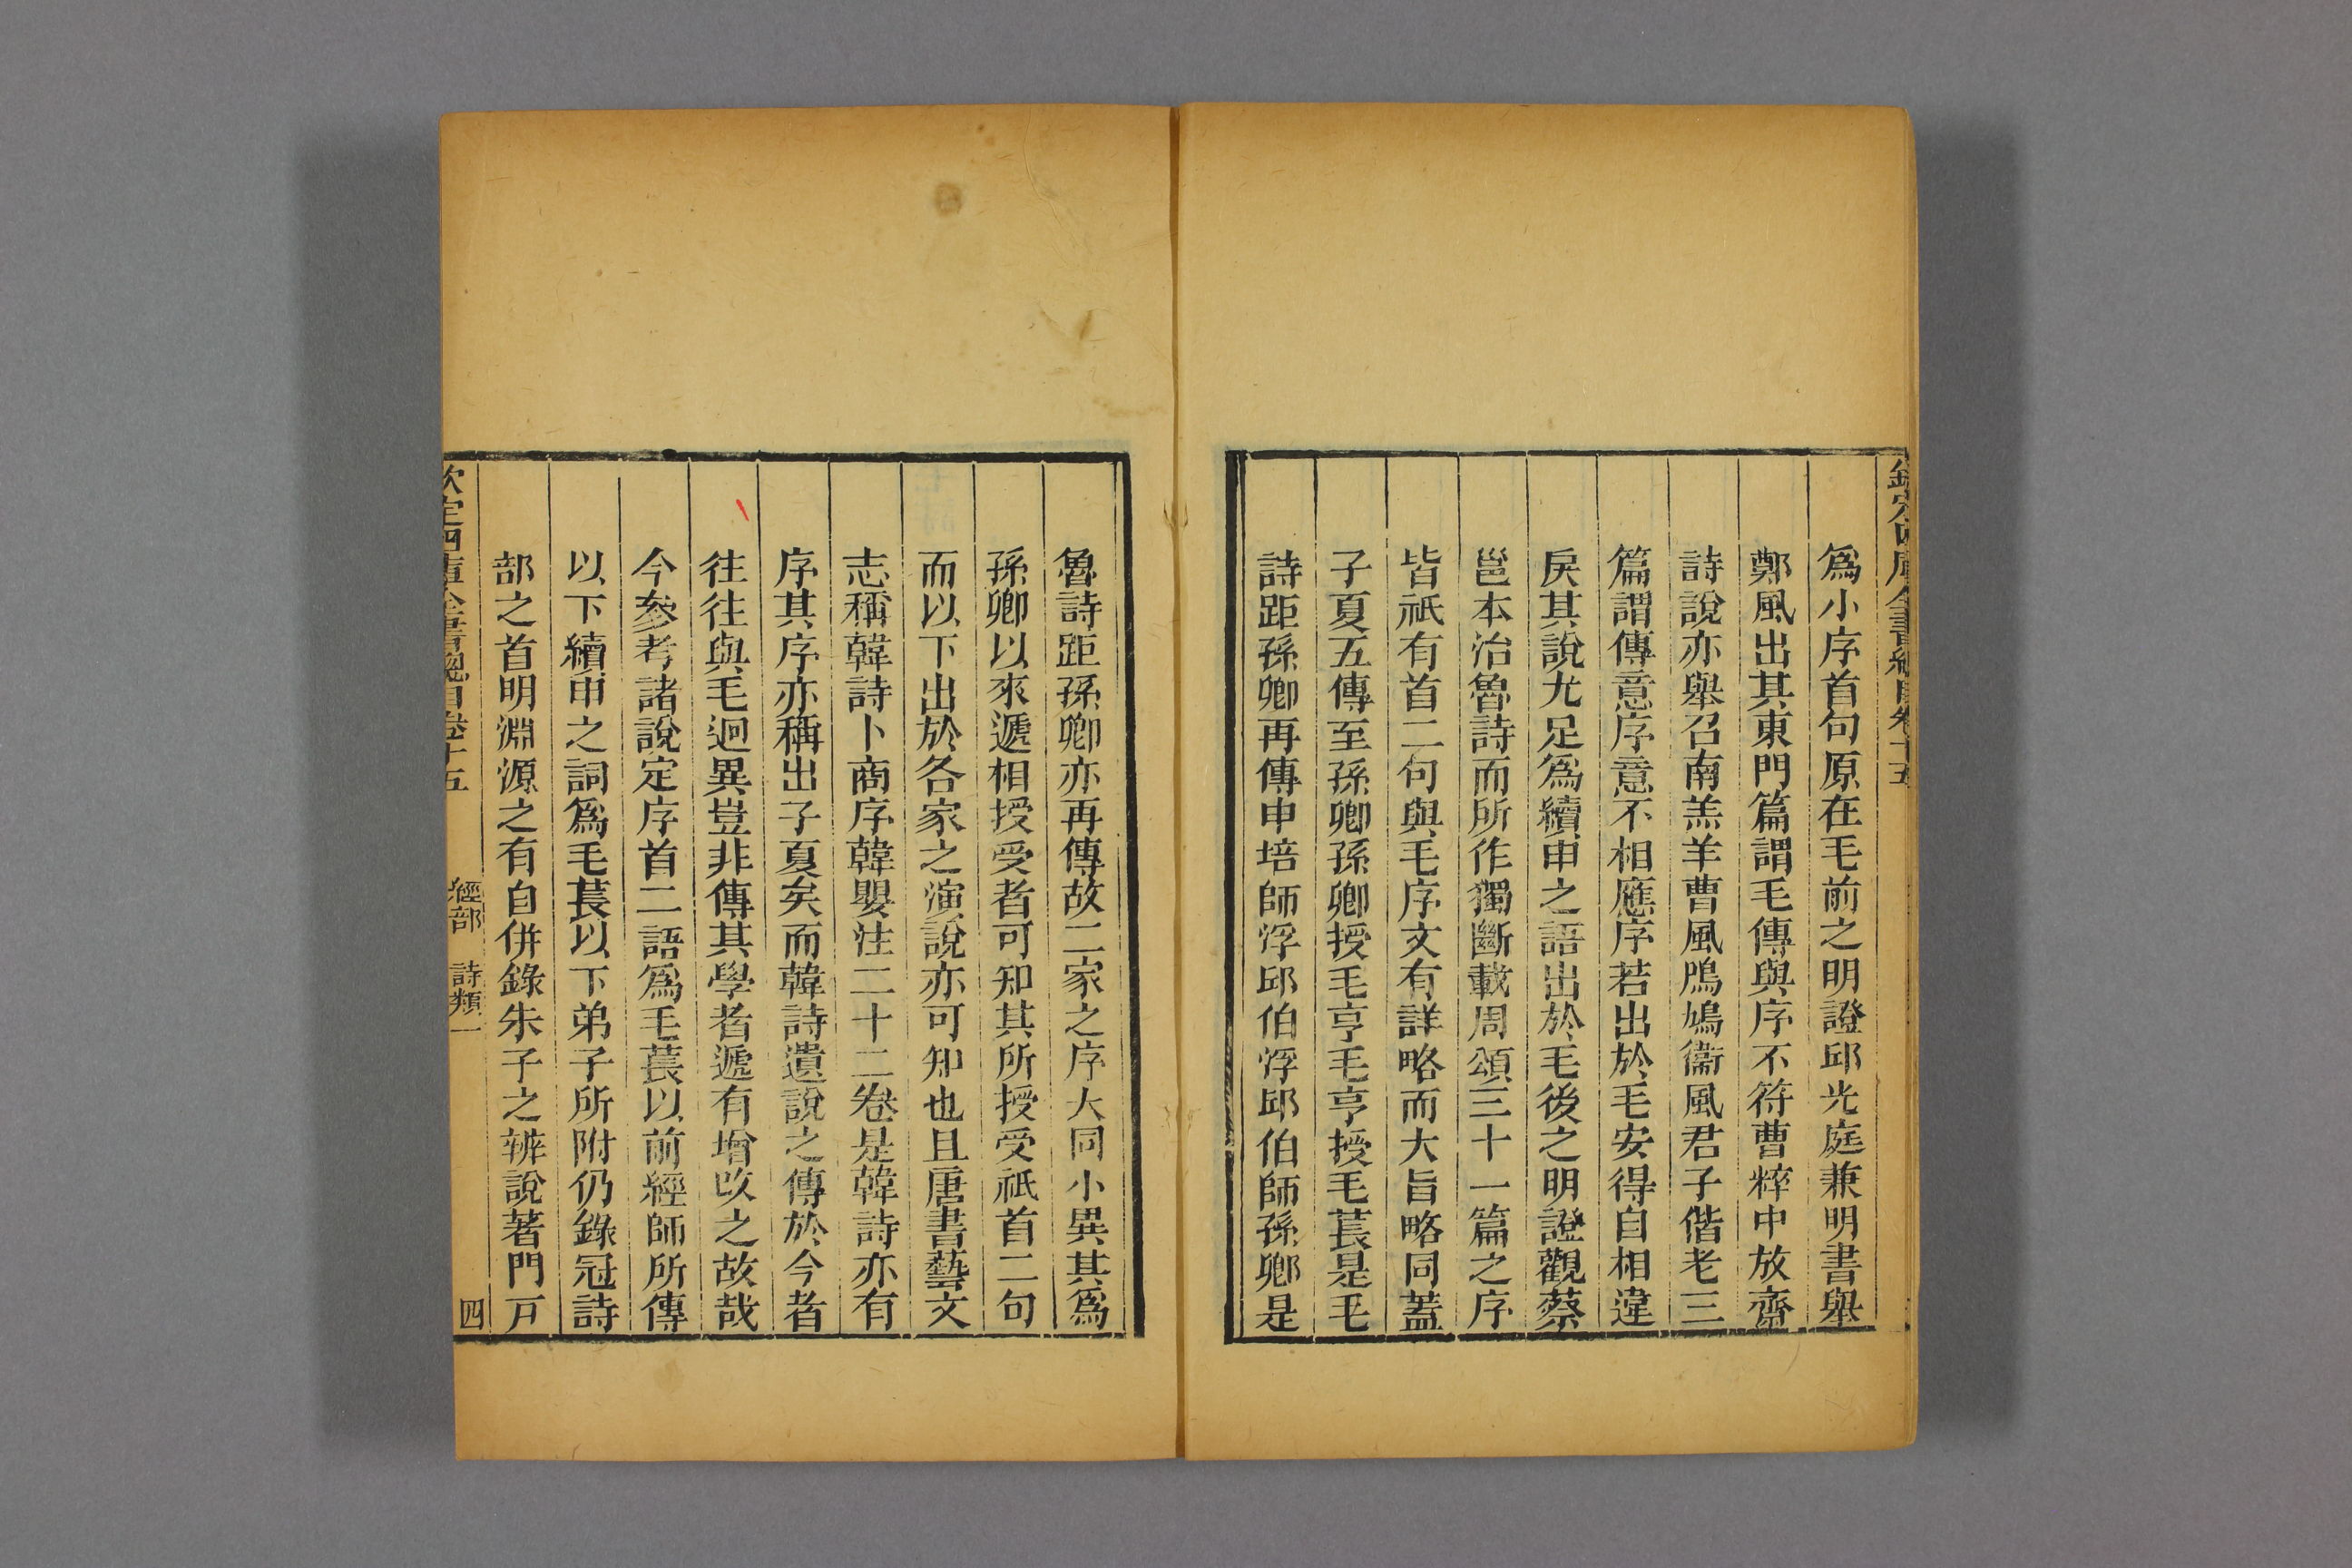 欽定四庫全書總目卷十五
為小序首句原在毛前之明證邱光庭兼明書舉
鄭風出其東門篇謂毛傳與序不符曹粹中放齋
詩說亦舉召南羔羊曹風鳲鳩衞風君子偕老三
篇謂傳意序意不相應序若出於毛安得自相違
戾其說尤足為續申之語出於毛後之明證觀蔡
邕本治魯詩而所作獨斷載周頌三十一篇之序
皆祇有首二句與毛序文有詳略而大旨略同蓋
子夏五傳至孫卿孫卿授毛亨毛亨授毛萇是毛
詩距孫卿再傳申培師浮邱伯浮邱伯師孫卿是
魯詩距孫卿亦再傳故二家之序大同小異其為
孫卿以來遞相授受者可知其所授受祇首二句
而以下出於各家之演說亦可知也且唐書藝文
志稱韓詩卜商序韓嬰注二十二卷是韓詩亦有
序其序亦稱出子夏矣而韓詩遺說之傳於今者
往往與毛迥異豈非傳其學者遞有增改之故哉
今參考諸說定序首二語為毛萇以前經師所傳
以下續申之詞為毛萇以下弟子所附仍錄冠詩
部之首明淵源之有自併錄朱子之辨說著門戸
欽定四庫全書總目卷十五 經部 詩類一 四